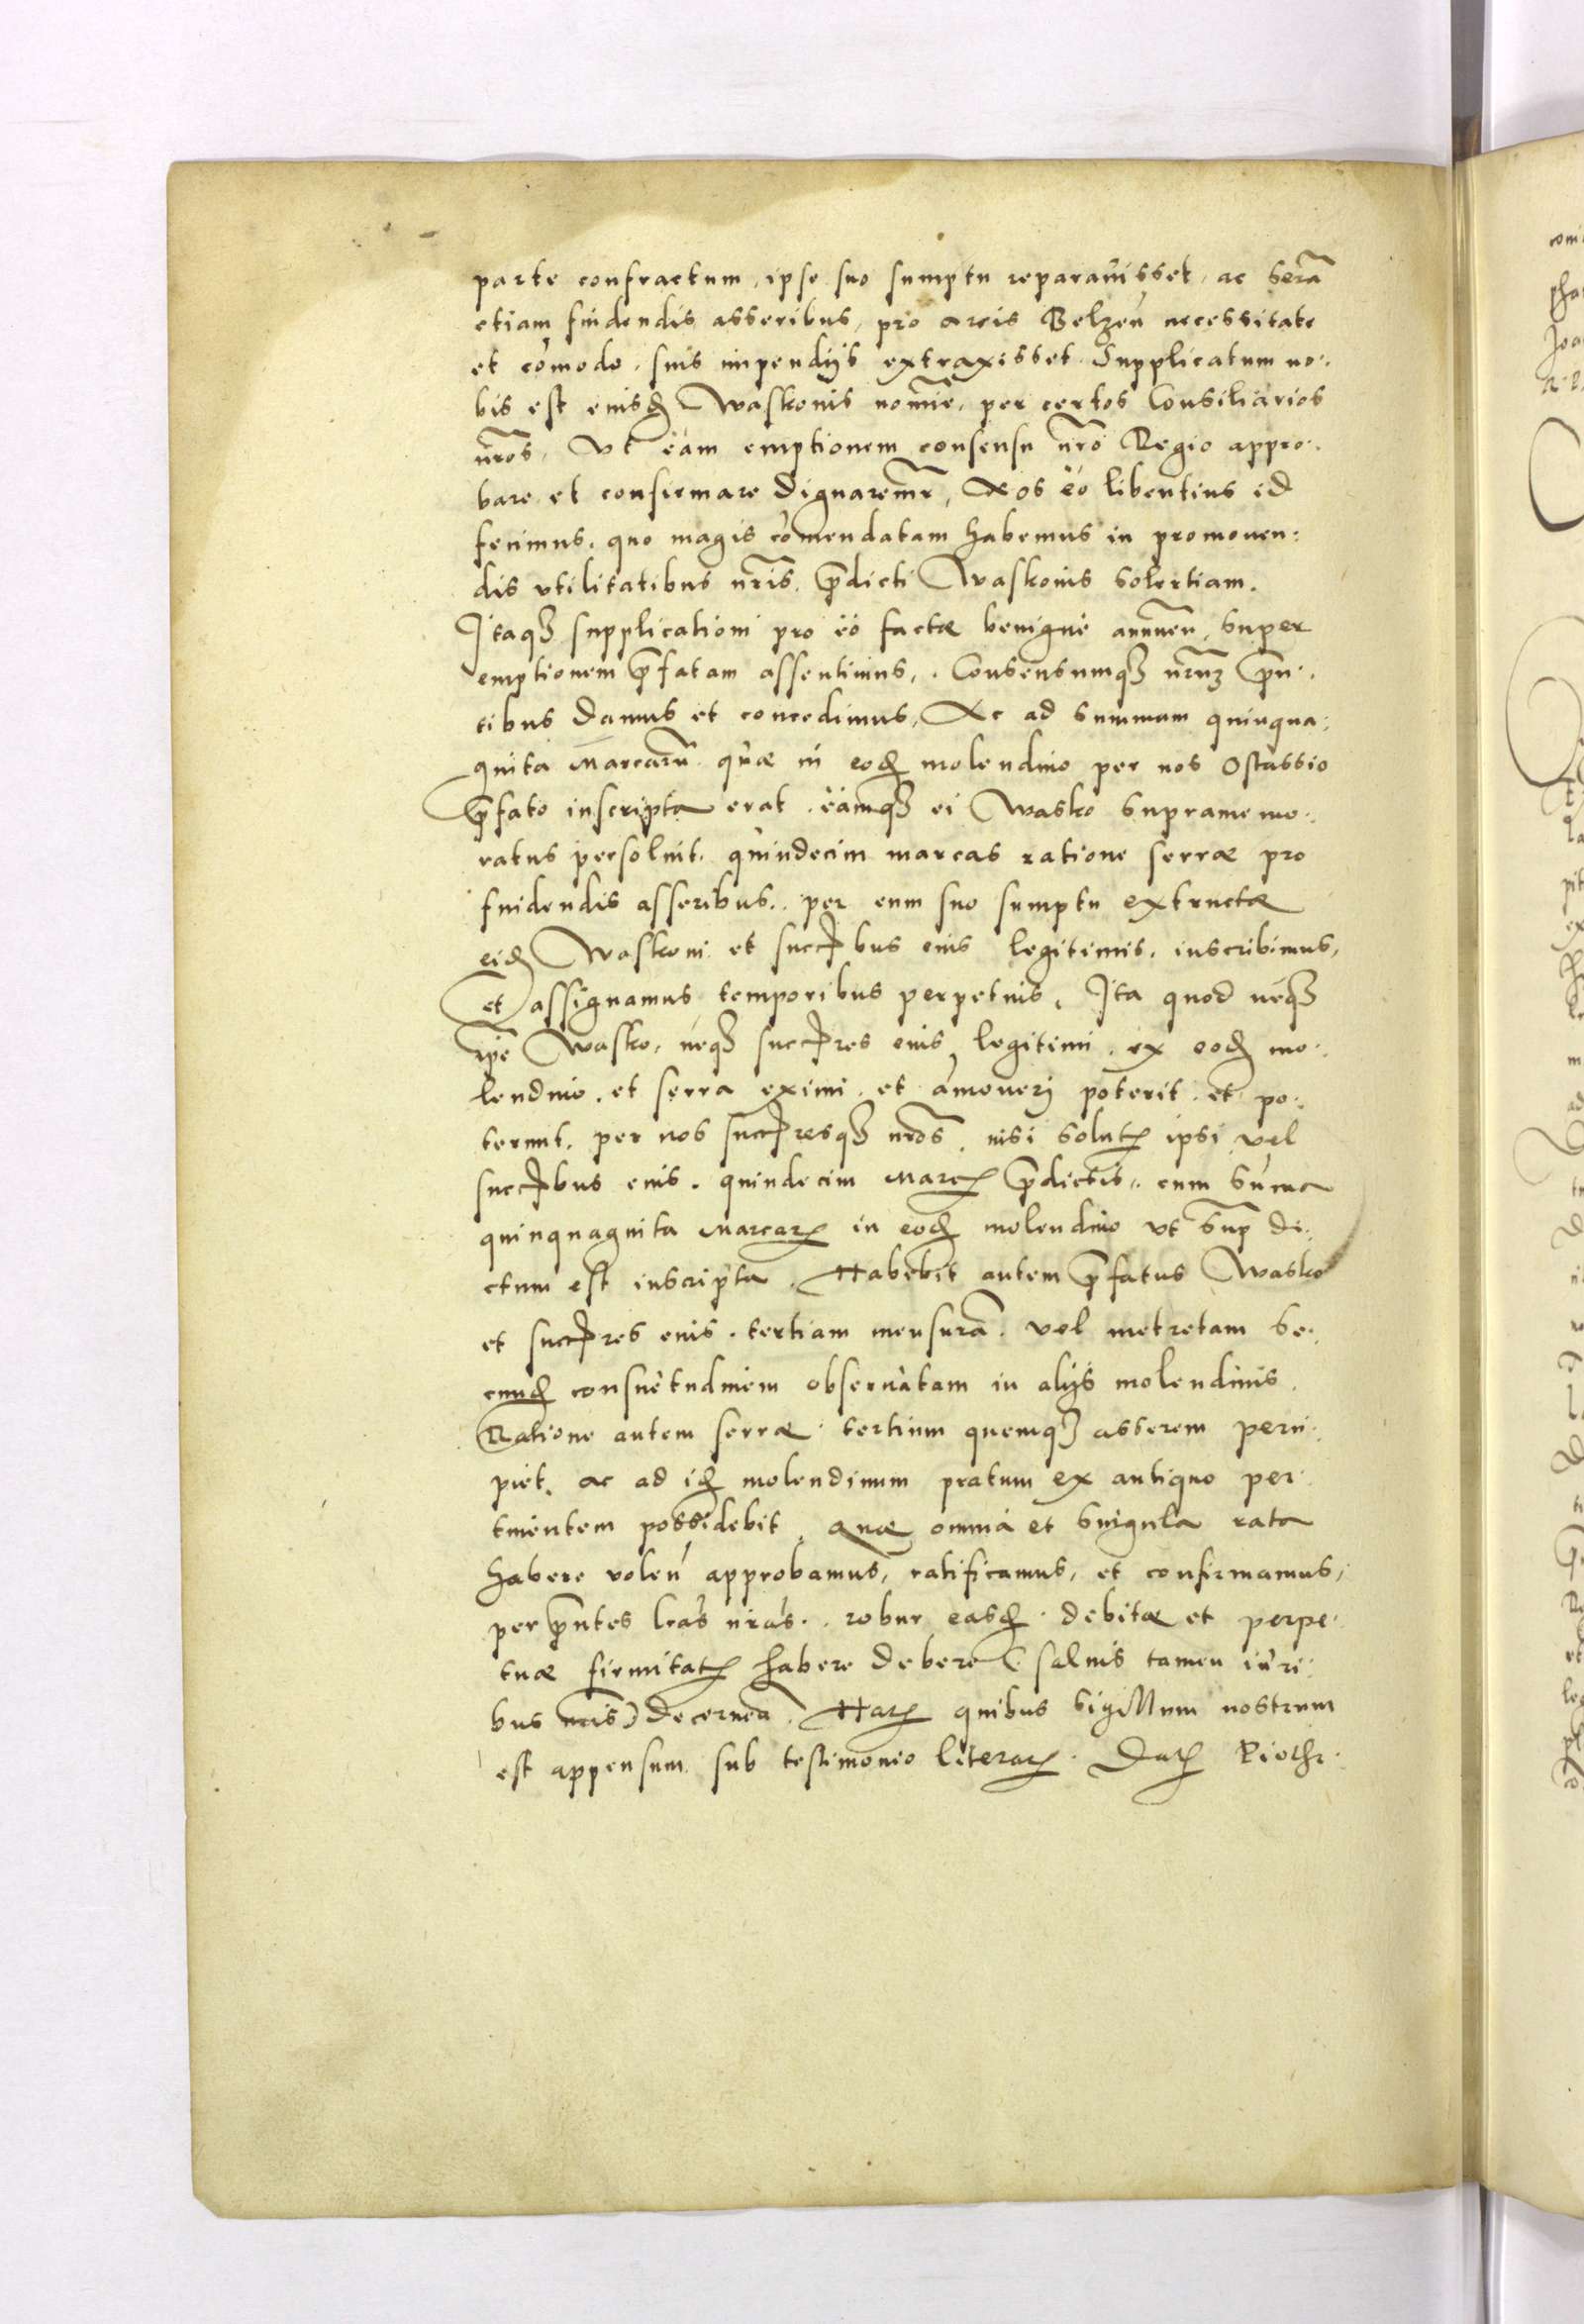 parte confractum, ipse suo sumptu reparauisset, ac serã
etiam findendis asseribus, pro arcis Belzeñ necessitate
et cõmodo. suis impendijs extraxisset. Supplicatum no:
bis est eiusdꝫ Waskonis nomĩe, per certos Consiliarios
nr̃os, vt eam emptionem consensu nr̃o Regio appro:
bare et confirmare dignaremr̃, Nos eo libentius id
fecimus. quo magis cõmendatam habemus in promouen:
dis vtilitatibus nr̃is. p̃dicti Waskonis solertiam.
Itaqꝫ supplicationi pro eo factæ benigne annueñ, super
emptionem p̃fatam assentimus,. Consensumqꝫ nr̃um p̃n:
tibus damus et concedimus, Ac ad summam quinqua:
ginta marcarũ quæ in eodꝫ molendino per nos Ostassio
p̃fato inscripta erat. eamqꝫ ei Wasko supramemo:
ratus persoluit. quindecim marcas ratione serræ pro
findendis asseribus. per eum suo sumptu extructæ
eidꝫ Waskoni et succꝫbus eius legitimis. inscribimus,
et assignamus temporibus perpetuis, Ita quod neqꝫ
ip̃e Wasko, neqꝫ succꝫres eius legitimi. ex eodꝫ mo:
lendino. et serra eximi. et amouerj poterit. et po:
terunt. per nos succꝫresqꝫ nr̃os. nisi solutꝫ ipsi vel
succꝫbus eius. quindecim marcꝫ p̃dictis. cum sũma
quinquaginta marcarꝫ in eodꝫ molendino vt sup̃ di:
ctum est inscripta. Habebit autem p̃fatus Wasko
et succꝫres eius. tertiam mensurã. vel metretam se:
cundꝫ consuetudinem obseruatam in alijs molendinis.
Ratione autem serræ. tertium quemqꝫ asserem perci:
piet. ac ad idꝫ molendinum pratum ex antiquo per:
tinentem possidebit. Quæ omnia et singula rata
habere voleñ approbamus, ratificamus, et confirmamus,
per p̃ntes lr̃as nr̃as. robur easdꝫ. debitæ et perpe:
tuæ firmitatꝫ habere debere (salius tamen iuri:
bus nr̃is) decerneñ. Harꝫ quibus sigillum nostrum
est appensum sub testimonio literarꝫ. Datꝫ Piothr: